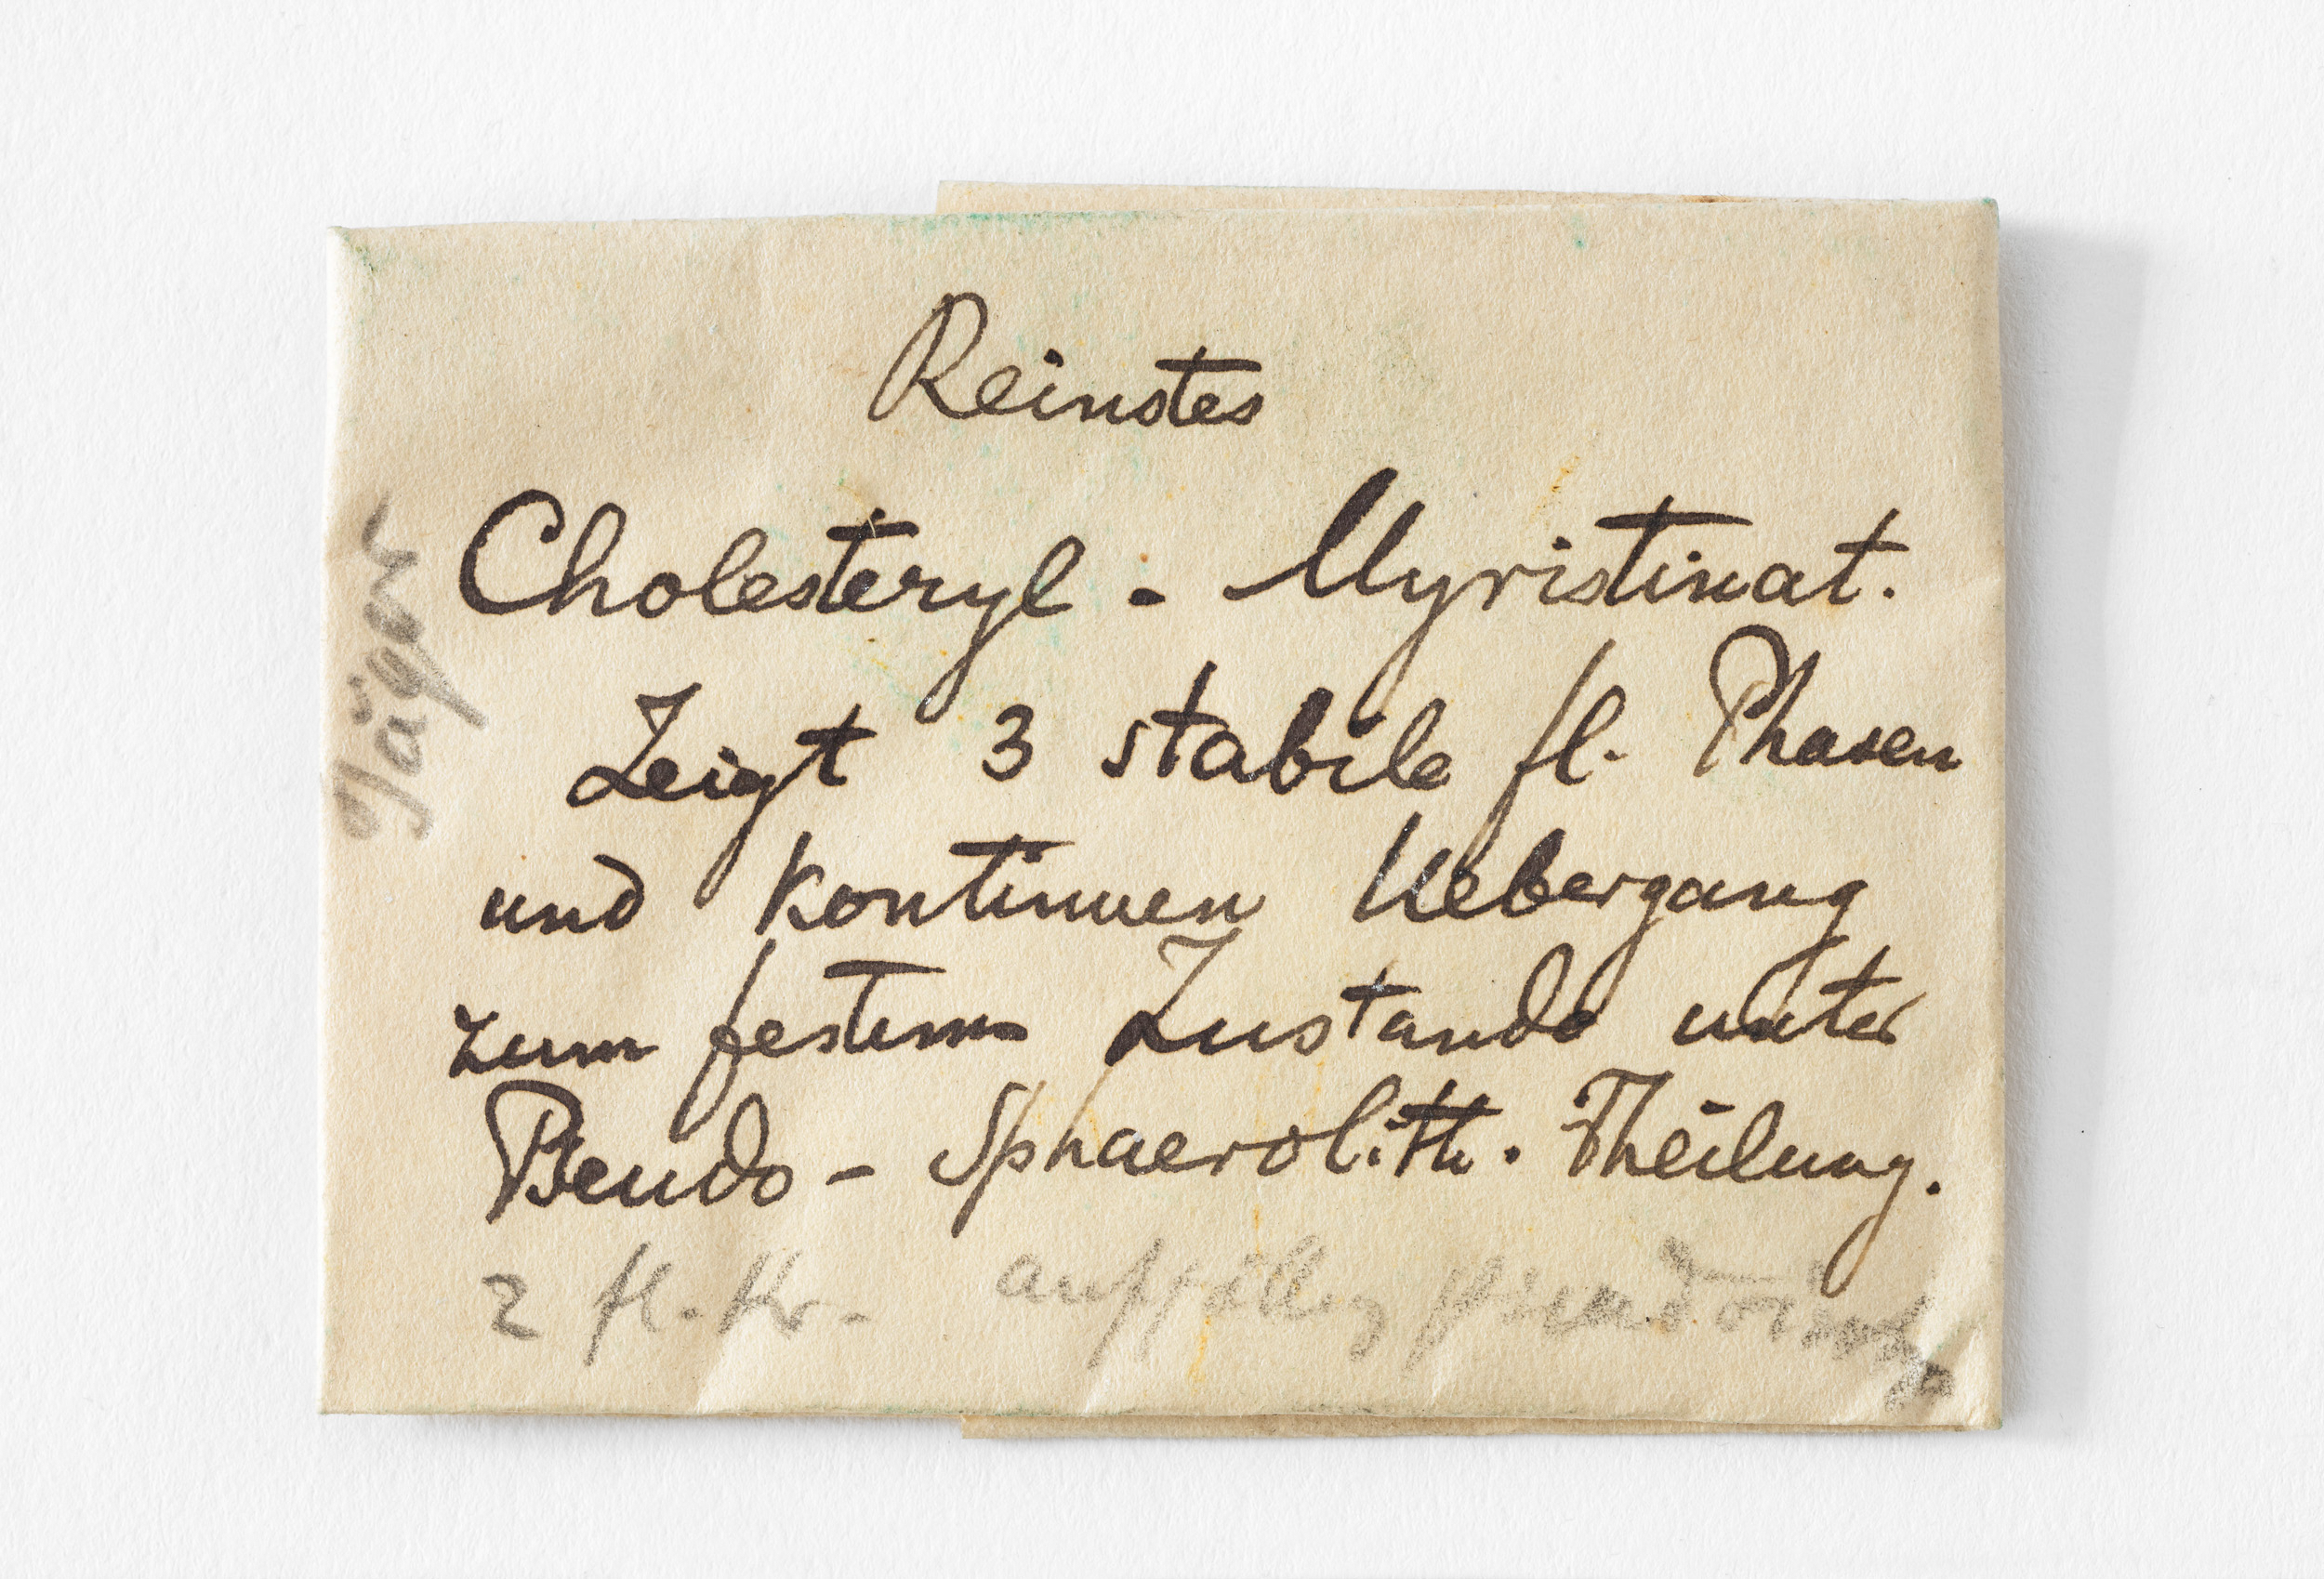 Reinstes
Cholesteryl - Myristinat.
Zeigt 3 stabile fl. Phasen
und kontinuen Uebergang
zum festem Zustande unter
Pseudo - Sphaerolith. Theilung.
2 fl. Kr. auffällig
Jäger